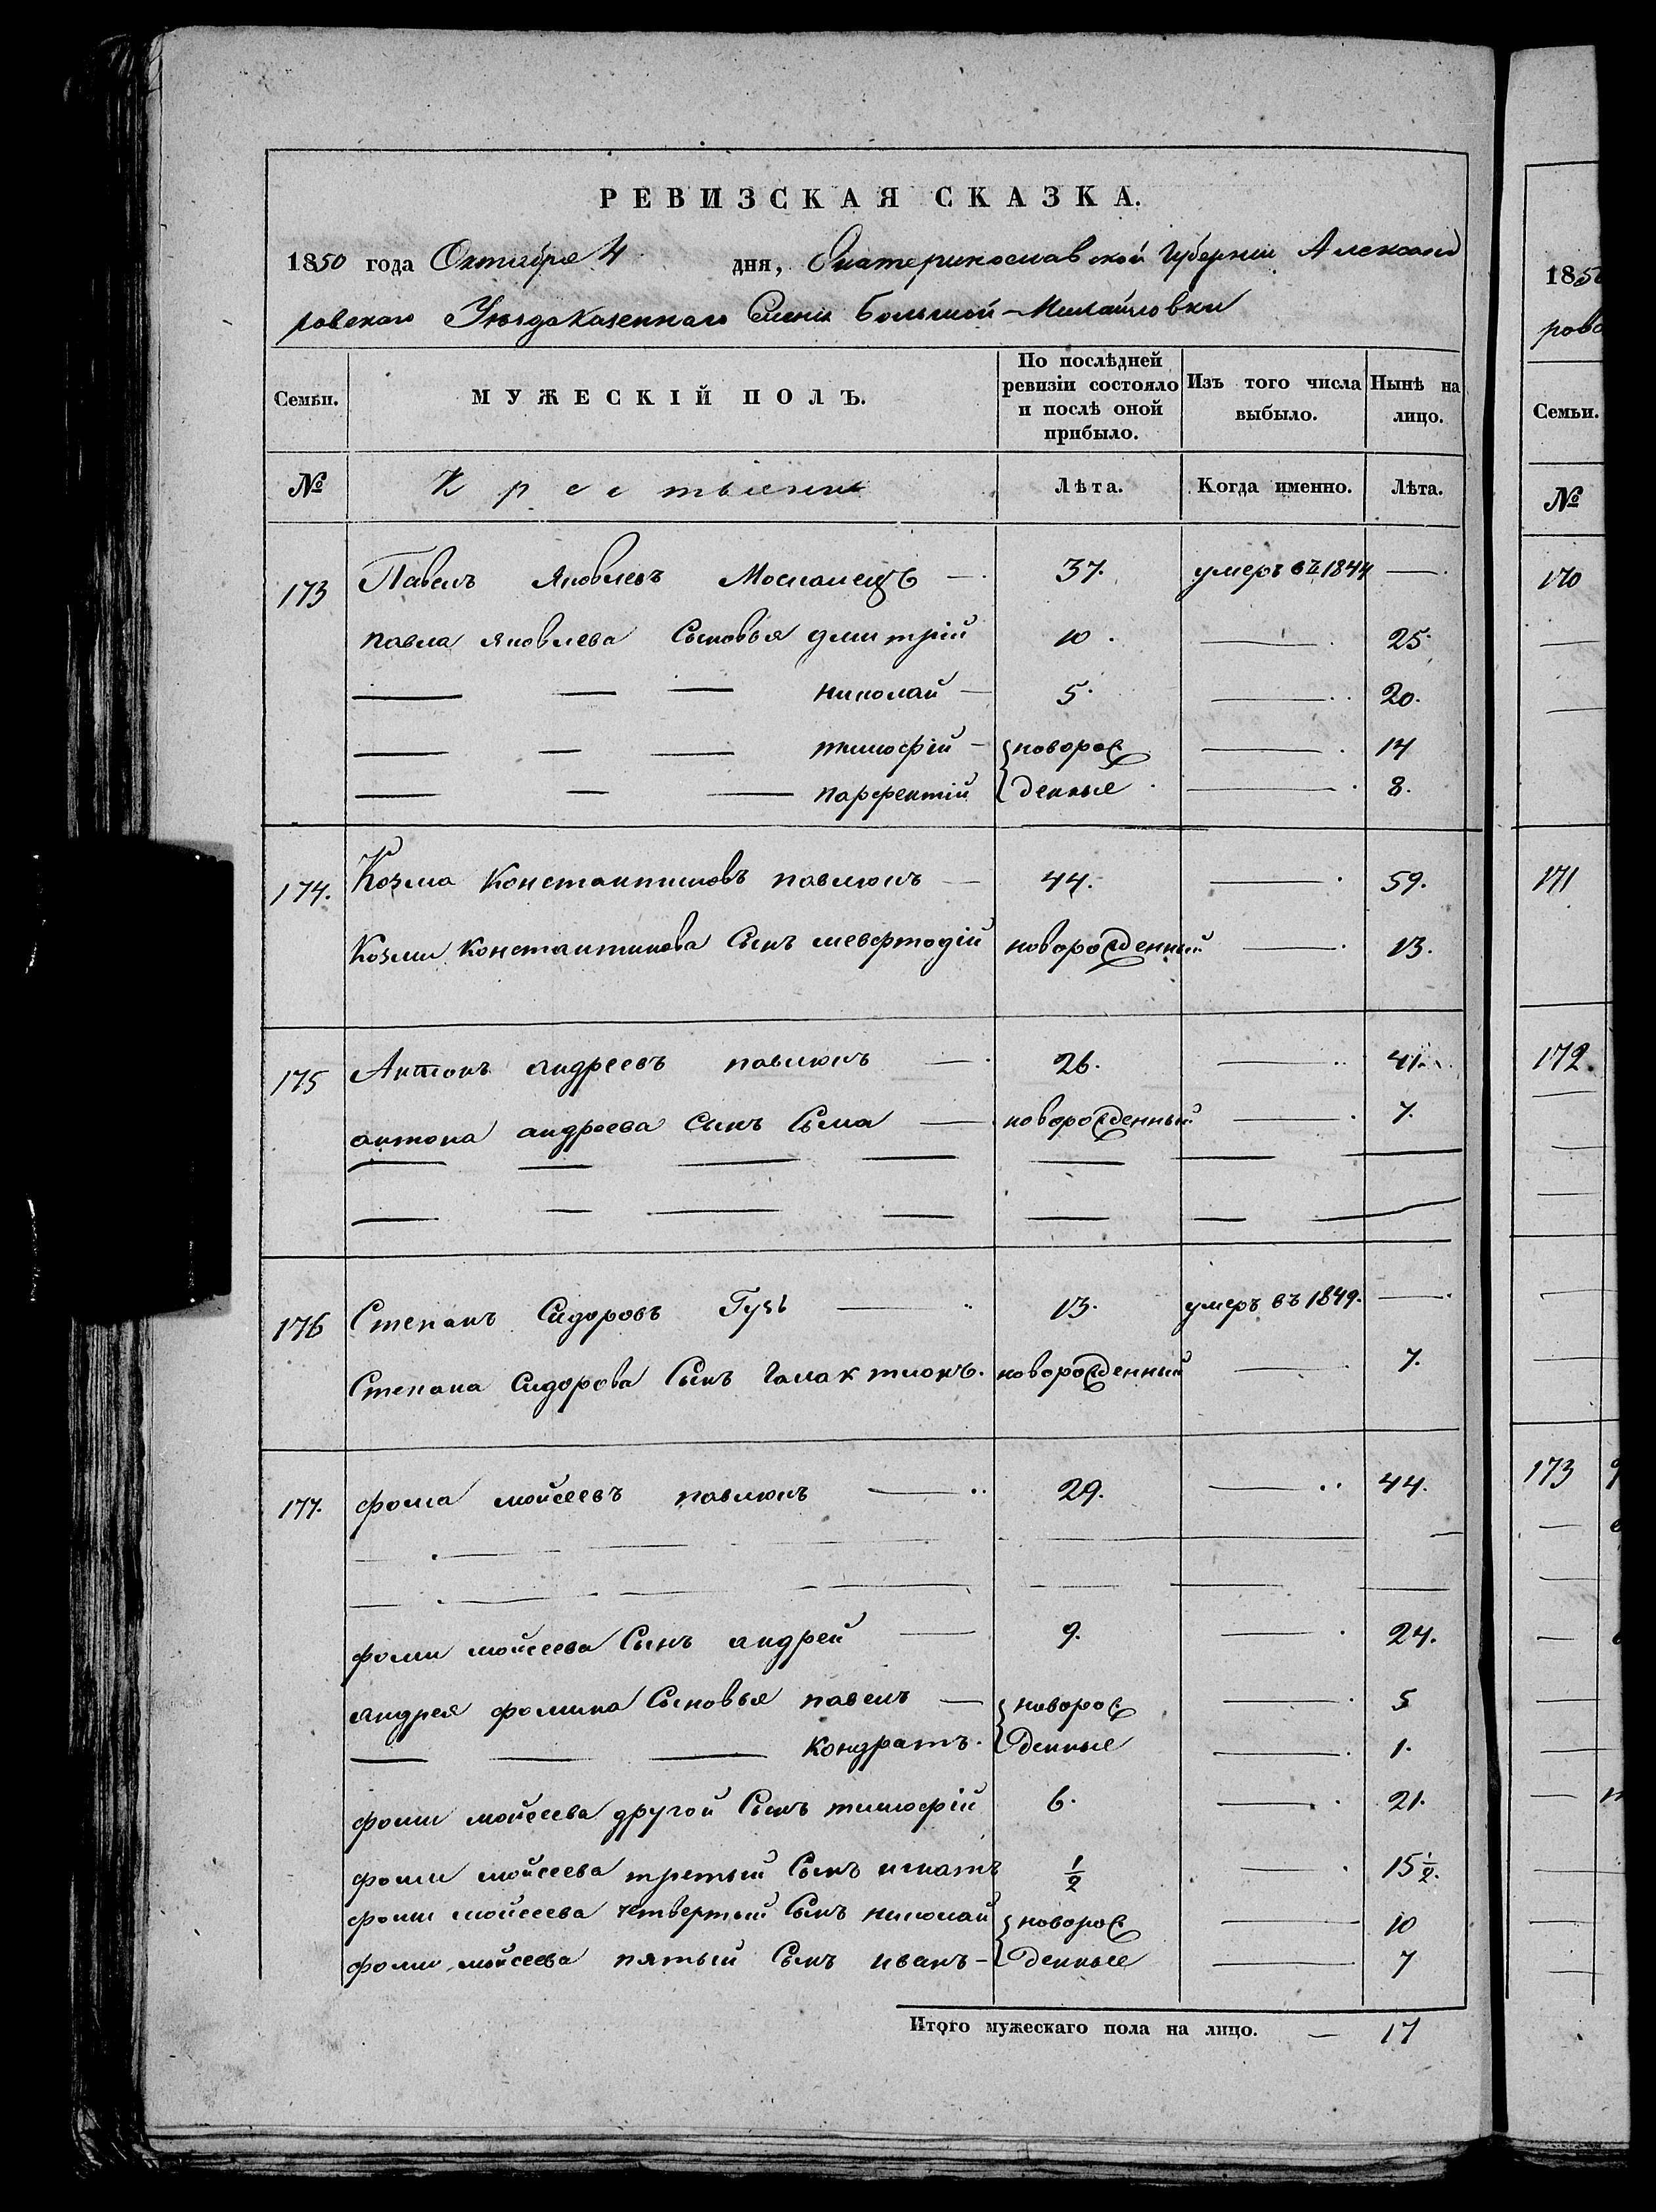 РЕВИЗСКАЯ СКАЗКА.
1850 года Октября 4 дня, Екатеринославской Губернии Александ
ровскаго Уѣзда Казеннаго Селенія Большой-Михайловки
Семьи. МУЖЕСКІЙ ПОЛЪ. По послѣдней ревизіи состояло и послѣ оной прибыло. Изъ того числа выбыло. Нынѣ на лицо.
№ Крестьяне Лѣта. Когда именно. Лѣта.
173 Павелъ Яковлевъ Москалецъ — 37. умеръ въ 1844 —
павла яковлева Сыновья дмитрій 10. — 25
— — — николай — 5. — 20.
— — — тимофій — { новорож — 14
— — — парфентій { денные — 8.
174. Козма Константиновъ павлюкъ — 44. — 59.
Козми Константинова Сынъ мефтодій новорожденный — 13.
175 Антонъ андреевъ павлюкъ — 26. — 41.
антона андреева сынъ Сема — новорожденный — 7.
176 Степанъ Сидоровъ Гузь — 13. умеръ въ 1849. —
Степана Сидорова Сынъ Галактионъ. новорожденный — 7.
177. фома мойсеевъ павлюкъ — 29. — 44.
фоми мойсеева Сынъ андрей — 9. — 24.
андрея фомина Сыновья павелъ — { новорож — 5
— — — кондратъ. { денные — 1.
фоми мойсеева другой Сынъ тимофій 6. — 21.
фоми мойсеева третый Сынъ игнатъ ½ — 15 ½.
фоми мойсеева четвертый Сынъ николай { новорож — 10
фоми мойсеева пятый Сынъ иванъ — { денные — 7
Итого мужескаго пола на лицо. — 17
1850
рово
Семьи.
№
170
171
172.
173